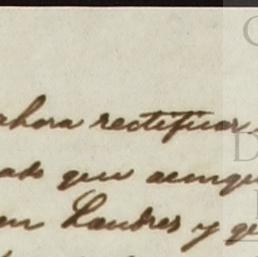 ahora rectificar
que aunqu
en Londres y qu